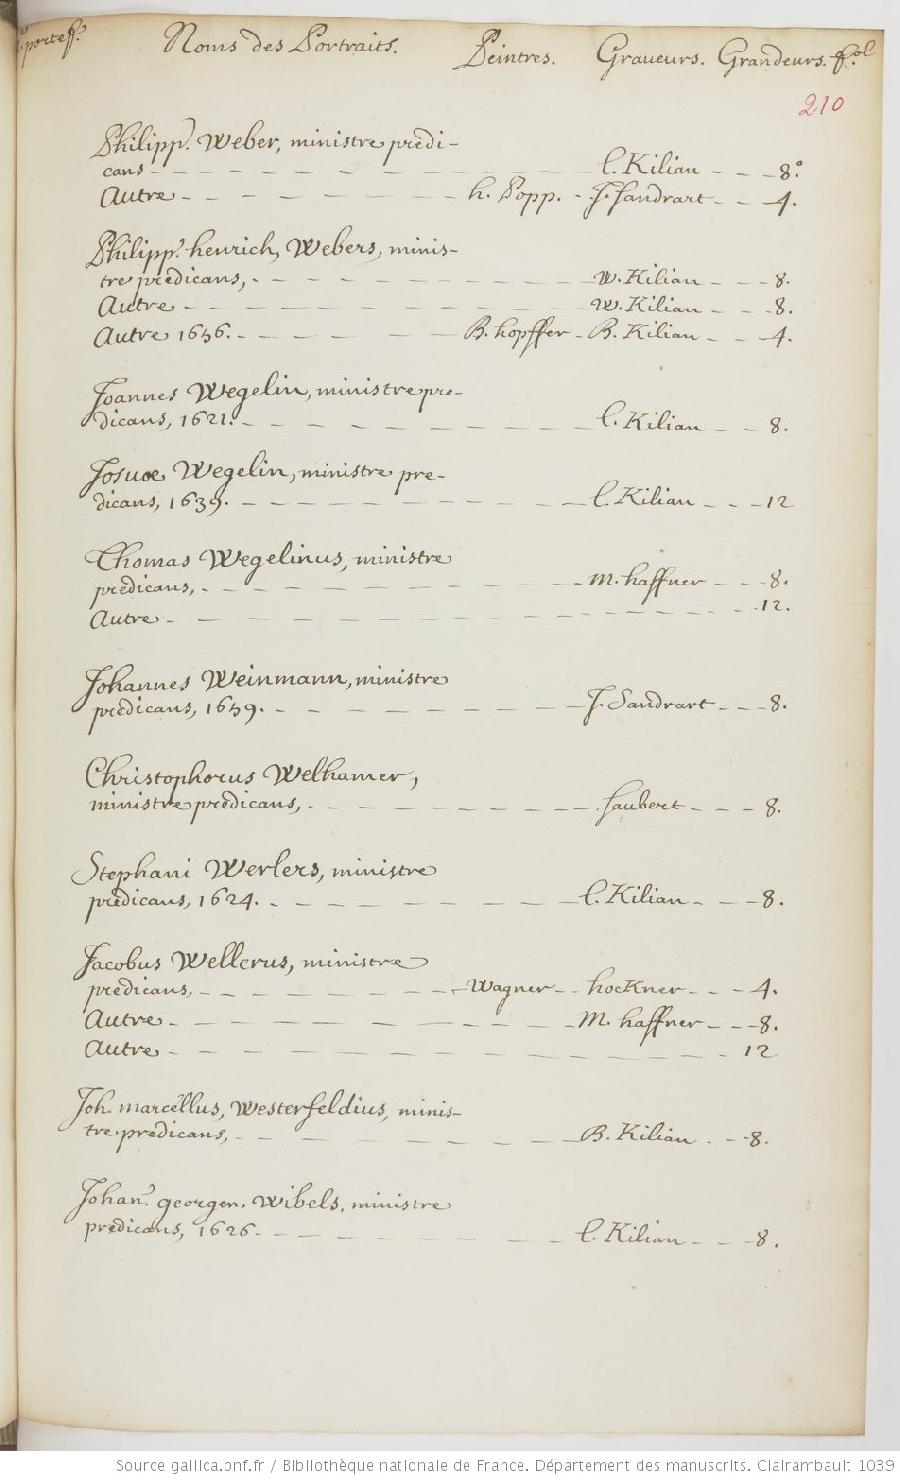 portef. Noms des Portraits. Peintres. Graveurs. Grandeurs. fol
210
Philipp. Weber, ministre prédi-
cans - - - l. Kilian - - - 8°
Autre - - - h. Popp. - J. Sandrart - - 4.
Philipp. henrich, Webers, minis-
tre prédicans, - - - W. Kilian - - - 8.
Autre - - - W. Kilian - - - 8.
Autre 1656. - - - B. hopffer - B. Kilian - - 4.
Joannes Wegelin, ministre pre-
dicans, 1621. - - - l. Kilian - - 8.
Josuæ Wegelin, ministre pre-
dicans, 1639. - - - l. Kilian - - - 12
Thomas Wegelinus, ministre
prédicans, - - - M. haffner - - - 8.
Autre - - - 12.
Johannes Weinmann, ministre
prédicans, 1659. - - - J. Sandrart - - - 8.
Christophorus Welhamer,
ministre prédicans, - - - Saubert - - - 8.
Stephani Werlers, ministre
prédicans, 1624. - - - l. Kilian - - - 8.
Jacobus Wellerus, ministre
prédicans, - - - Wagner - - hocKner - - - 4.
Autre - - - M. haffner - - - 8.
Autre - - - 12
Joh. marcéllus, Westerfeldius, minis-
tre prédicans, - - - B. Kilian - - 8.
Johan. georgen. Wibels, ministre
prédicans, 1626. - - - l. Kilian - - - 8.
Source gallica.bnf.fr / Bibliothèque nationale de France. Département des manuscrits. Clairambault 1039